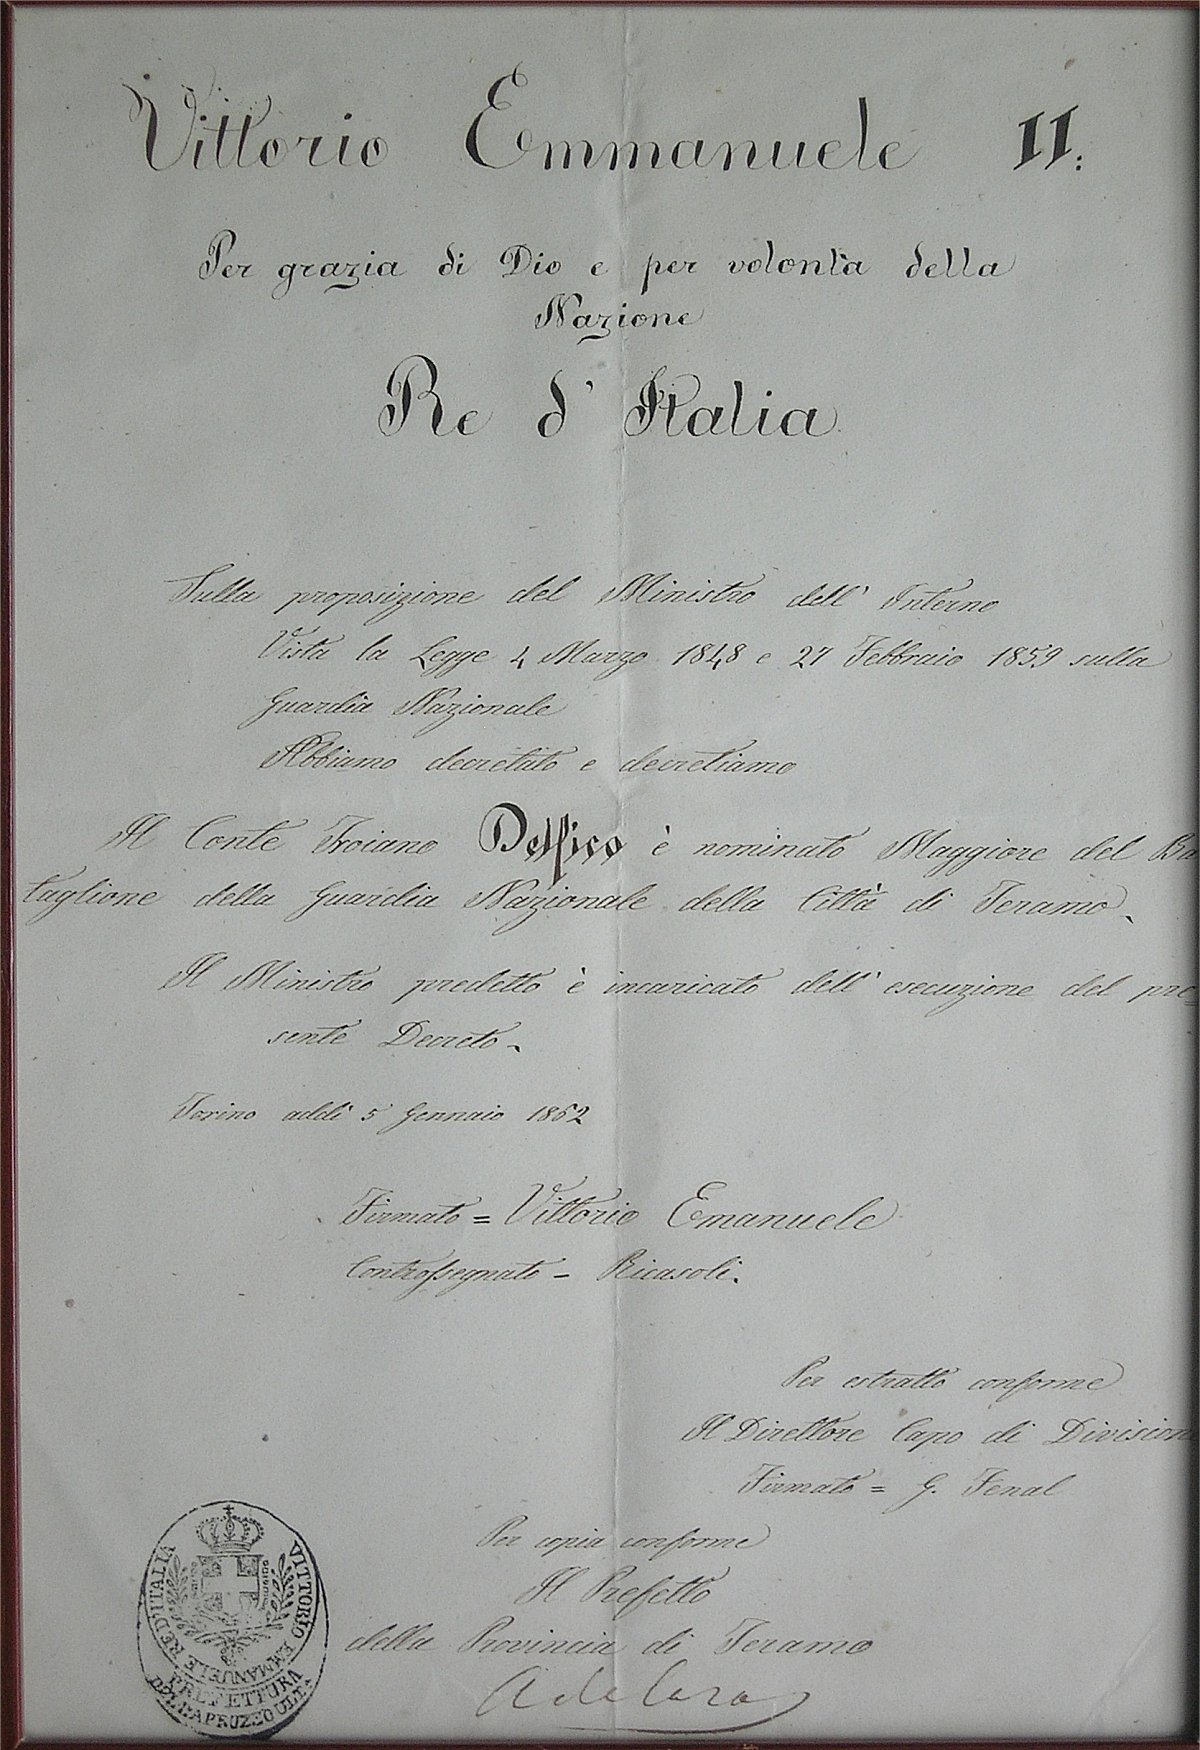 Vittorio Emmanuele II:
Per grazia di Dio e per volontà della
Nazione
Re d' Italia
Sulla proposizione del Ministro dell' Interno
Vista la Legge 4 Marzo 1848 e 27 Febbraio 1859 sulla
Guardia Nazionale
Abbiamo decretato e decretiamo
Il Conte Troiano Delfico è nominato Maggiore del Ba
taglione della Guardia Nazionale della Città di Teramo
Il Ministro predetto è incaricato dell' esecuzione del pre=
sente Decreto
Torino addì 5 Gennaio 1862
Firmato = Vittorio Emanuele
Controssegnato = Ricasoli.
Per estratto conforme
Il Direttore Capo di Division
Firmato = G. Fenal
Per copia conforme
Il Prefetto
della Provincia di Teramo
VITTORIO EMMANUELE RE D'ITALIA
PREFETTURA
APRUZZO ULT.